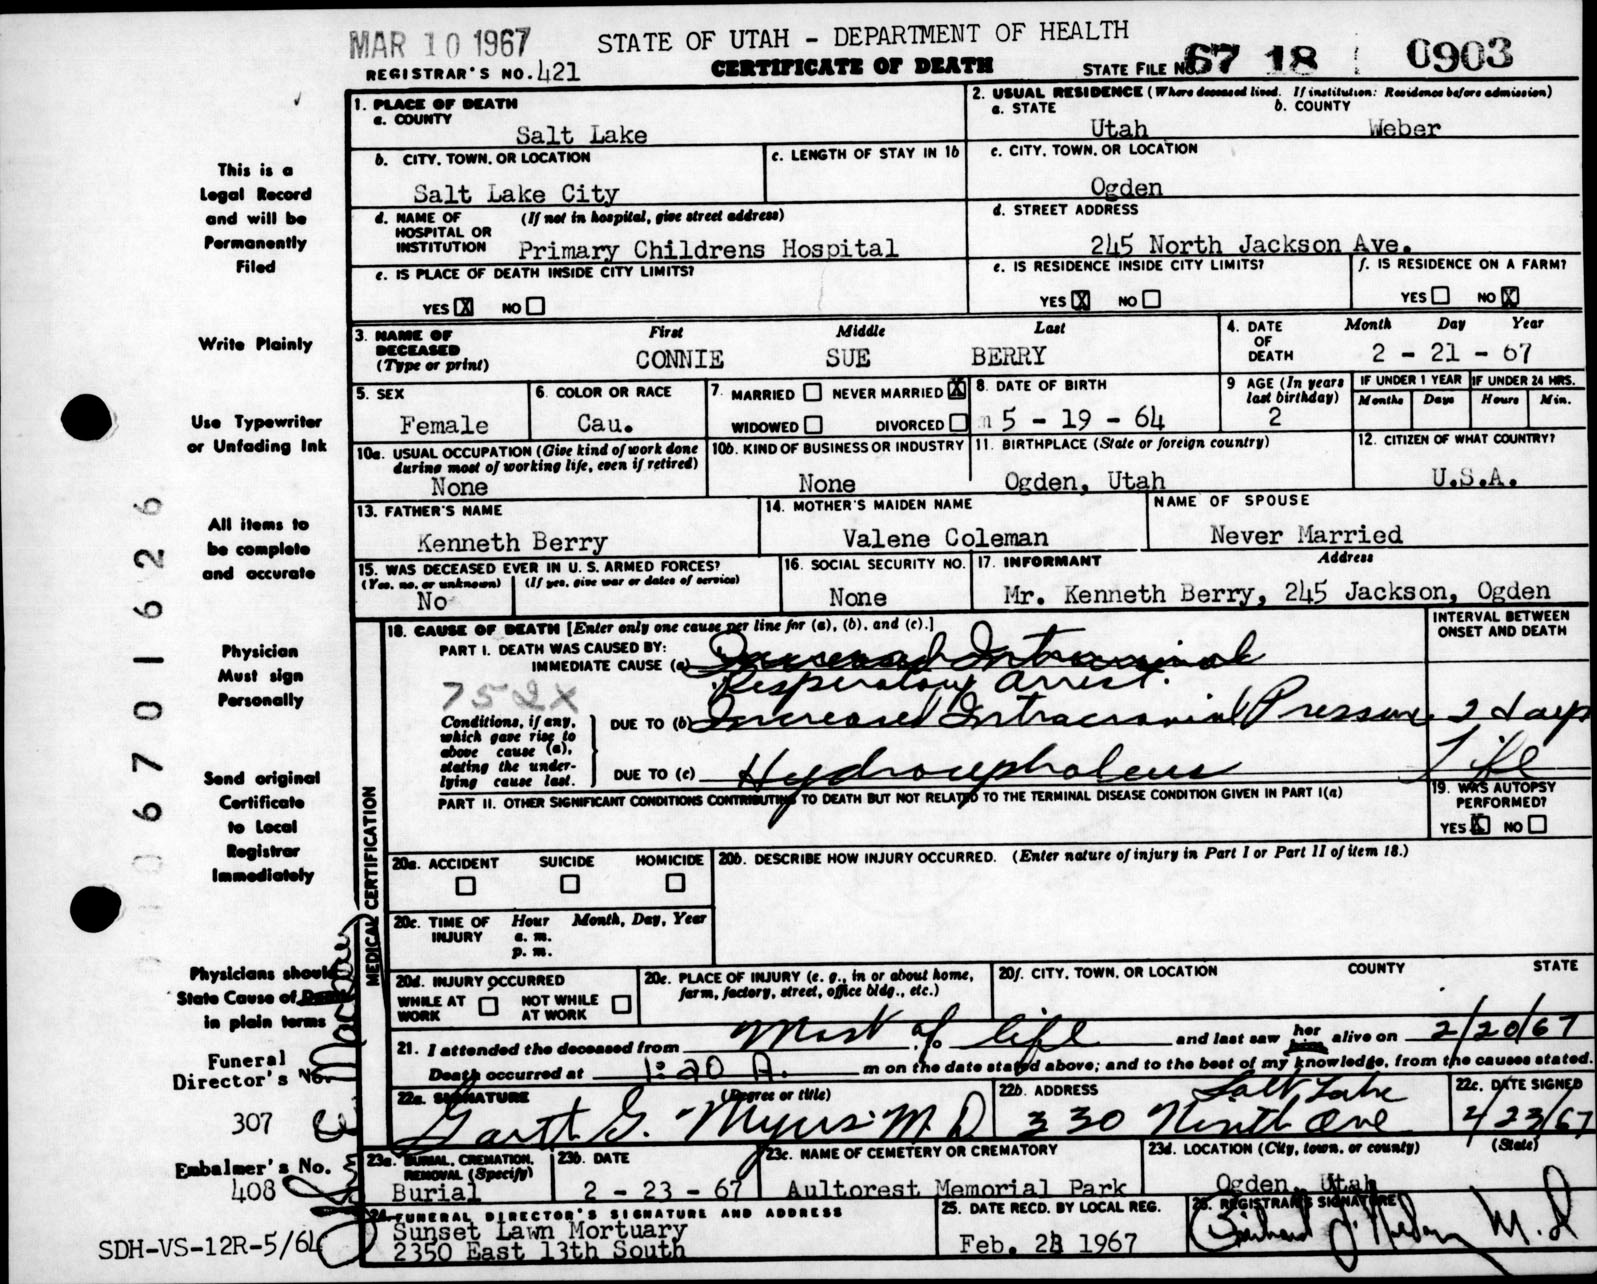 MAR 10 1967
STATE OF UTAH - DEPARTMENT OF HEALTH
REGISTRAR'S NO. 421
CERTIFICATE OF DEATH
STATE FILE NO. 67 18 0903
This is a
Legal Record
and will be
Permanently
Filed
Write Plainly
Use Typewriter
or Unfading Ink
All items to
be complete
and accurate
Physician
Must sign
Personally
Send original
Certificate
to Local
Registrar
Immediately
Physicians should
State Cause of Death
in plain terms
Funeral
Director's No.
307
Embalmer's No.
408
SDH-VS-12R-5/64
06701626
1. PLACE OF DEATH
a. COUNTY
Salt Lake
2. USUAL RESIDENCE (Where deceased lived. If institution: Residence before admission)
a. STATE b. COUNTY
Utah Weber
b. CITY, TOWN, OR LOCATION c. LENGTH OF STAY IN 1b
Salt Lake City
c. CITY, TOWN, OR LOCATION
Ogden
d. NAME OF HOSPITAL OR INSTITUTION (If not in hospital, give street address)
Primary Childrens Hospital
d. STREET ADDRESS
245 North Jackson Ave.
e. IS PLACE OF DEATH INSIDE CITY LIMITS?
YES X NO
e. IS RESIDENCE INSIDE CITY LIMITS?
YES X NO
f. IS RESIDENCE ON A FARM?
YES NO X
3. NAME OF DECEASED (Type or print) First Middle Last
CONNIE SUE BERRY
4. DATE OF DEATH Month Day Year
2 - 21 - 67
5. SEX
Female
6. COLOR OR RACE
Cau.
7. MARRIED NEVER MARRIED X
WIDOWED DIVORCED
8. DATE OF BIRTH
5 - 19 - 64
9 AGE (In years last birthday)
2
IF UNDER 1 YEAR IF UNDER 24 HRS.
Months Days Hours Min.
10a. USUAL OCCUPATION (Give kind of work done during most of working life, even if retired)
None
10b. KIND OF BUSINESS OR INDUSTRY
None
11. BIRTHPLACE (State or foreign country)
Ogden, Utah
12. CITIZEN OF WHAT COUNTRY?
U.S.A.
13. FATHER'S NAME
Kenneth Berry
14. MOTHER'S MAIDEN NAME
Valene Coleman
NAME OF SPOUSE
Never Married
15. WAS DECEASED EVER IN U. S. ARMED FORCES?
(Yes, no, or unknown) (If yes, give war or dates of service)
No
16. SOCIAL SECURITY NO.
None
17. INFORMANT Address
Mr. Kenneth Berry, 245 Jackson, Ogden
MEDICAL CERTIFICATION
18. CAUSE OF DEATH [Enter only one cause per line for (a), (b), and (c).]
INTERVAL BETWEEN ONSET AND DEATH
PART I. DEATH WAS CAUSED BY:
IMMEDIATE CAUSE (a) Increased Intracranial
Respiratory arrest.
752X
Conditions, if any, which gave rise to above cause (a), stating the underlying cause last.
DUE TO (b) Increased Intracranial Pressure 2 days
DUE TO (c) Hydrocephaleus Life
PART II. OTHER SIGNIFICANT CONDITIONS CONTRIBUTING TO DEATH BUT NOT RELATED TO THE TERMINAL DISEASE CONDITION GIVEN IN PART I(a)
19. WAS AUTOPSY PERFORMED?
YES X NO
20a. ACCIDENT SUICIDE HOMICIDE
20b. DESCRIBE HOW INJURY OCCURRED. (Enter nature of injury in Part I or Part II of item 18.)
20c. TIME OF INJURY Hour Month, Day, Year
a. m.
p. m.
20d. INJURY OCCURRED
WHILE AT WORK NOT WHILE AT WORK
20e. PLACE OF INJURY (e. g., in or about home, farm, factory, street, office bldg., etc.)
20f. CITY, TOWN, OR LOCATION COUNTY STATE
21. I attended the deceased from Most of life to and last saw her him alive on 2/20/67
Death occurred at 1:20 A. m on the date stated above; and to the best of my knowledge, from the causes stated.
22a. SIGNATURE (Degree or title)
Garth G. Myers M.D.
22b. ADDRESS
Salt Lake
330 Ninth Ave
22c. DATE SIGNED
2/23/67
23a. BURIAL, CREMATION, REMOVAL (Specify)
Burial
23b. DATE
2 - 23 - 67
23c. NAME OF CEMETERY OR CREMATORY
Aultorest Memorial Park
23d. LOCATION (City, town, or county) (State)
Ogden, Utah
24. FUNERAL DIRECTOR'S SIGNATURE AND ADDRESS
Sunset Lawn Mortuary
2350 East 13th South
25. DATE RECD. BY LOCAL REG.
Feb. 23 1967
26. REGISTRAR'S SIGNATURE
M.D